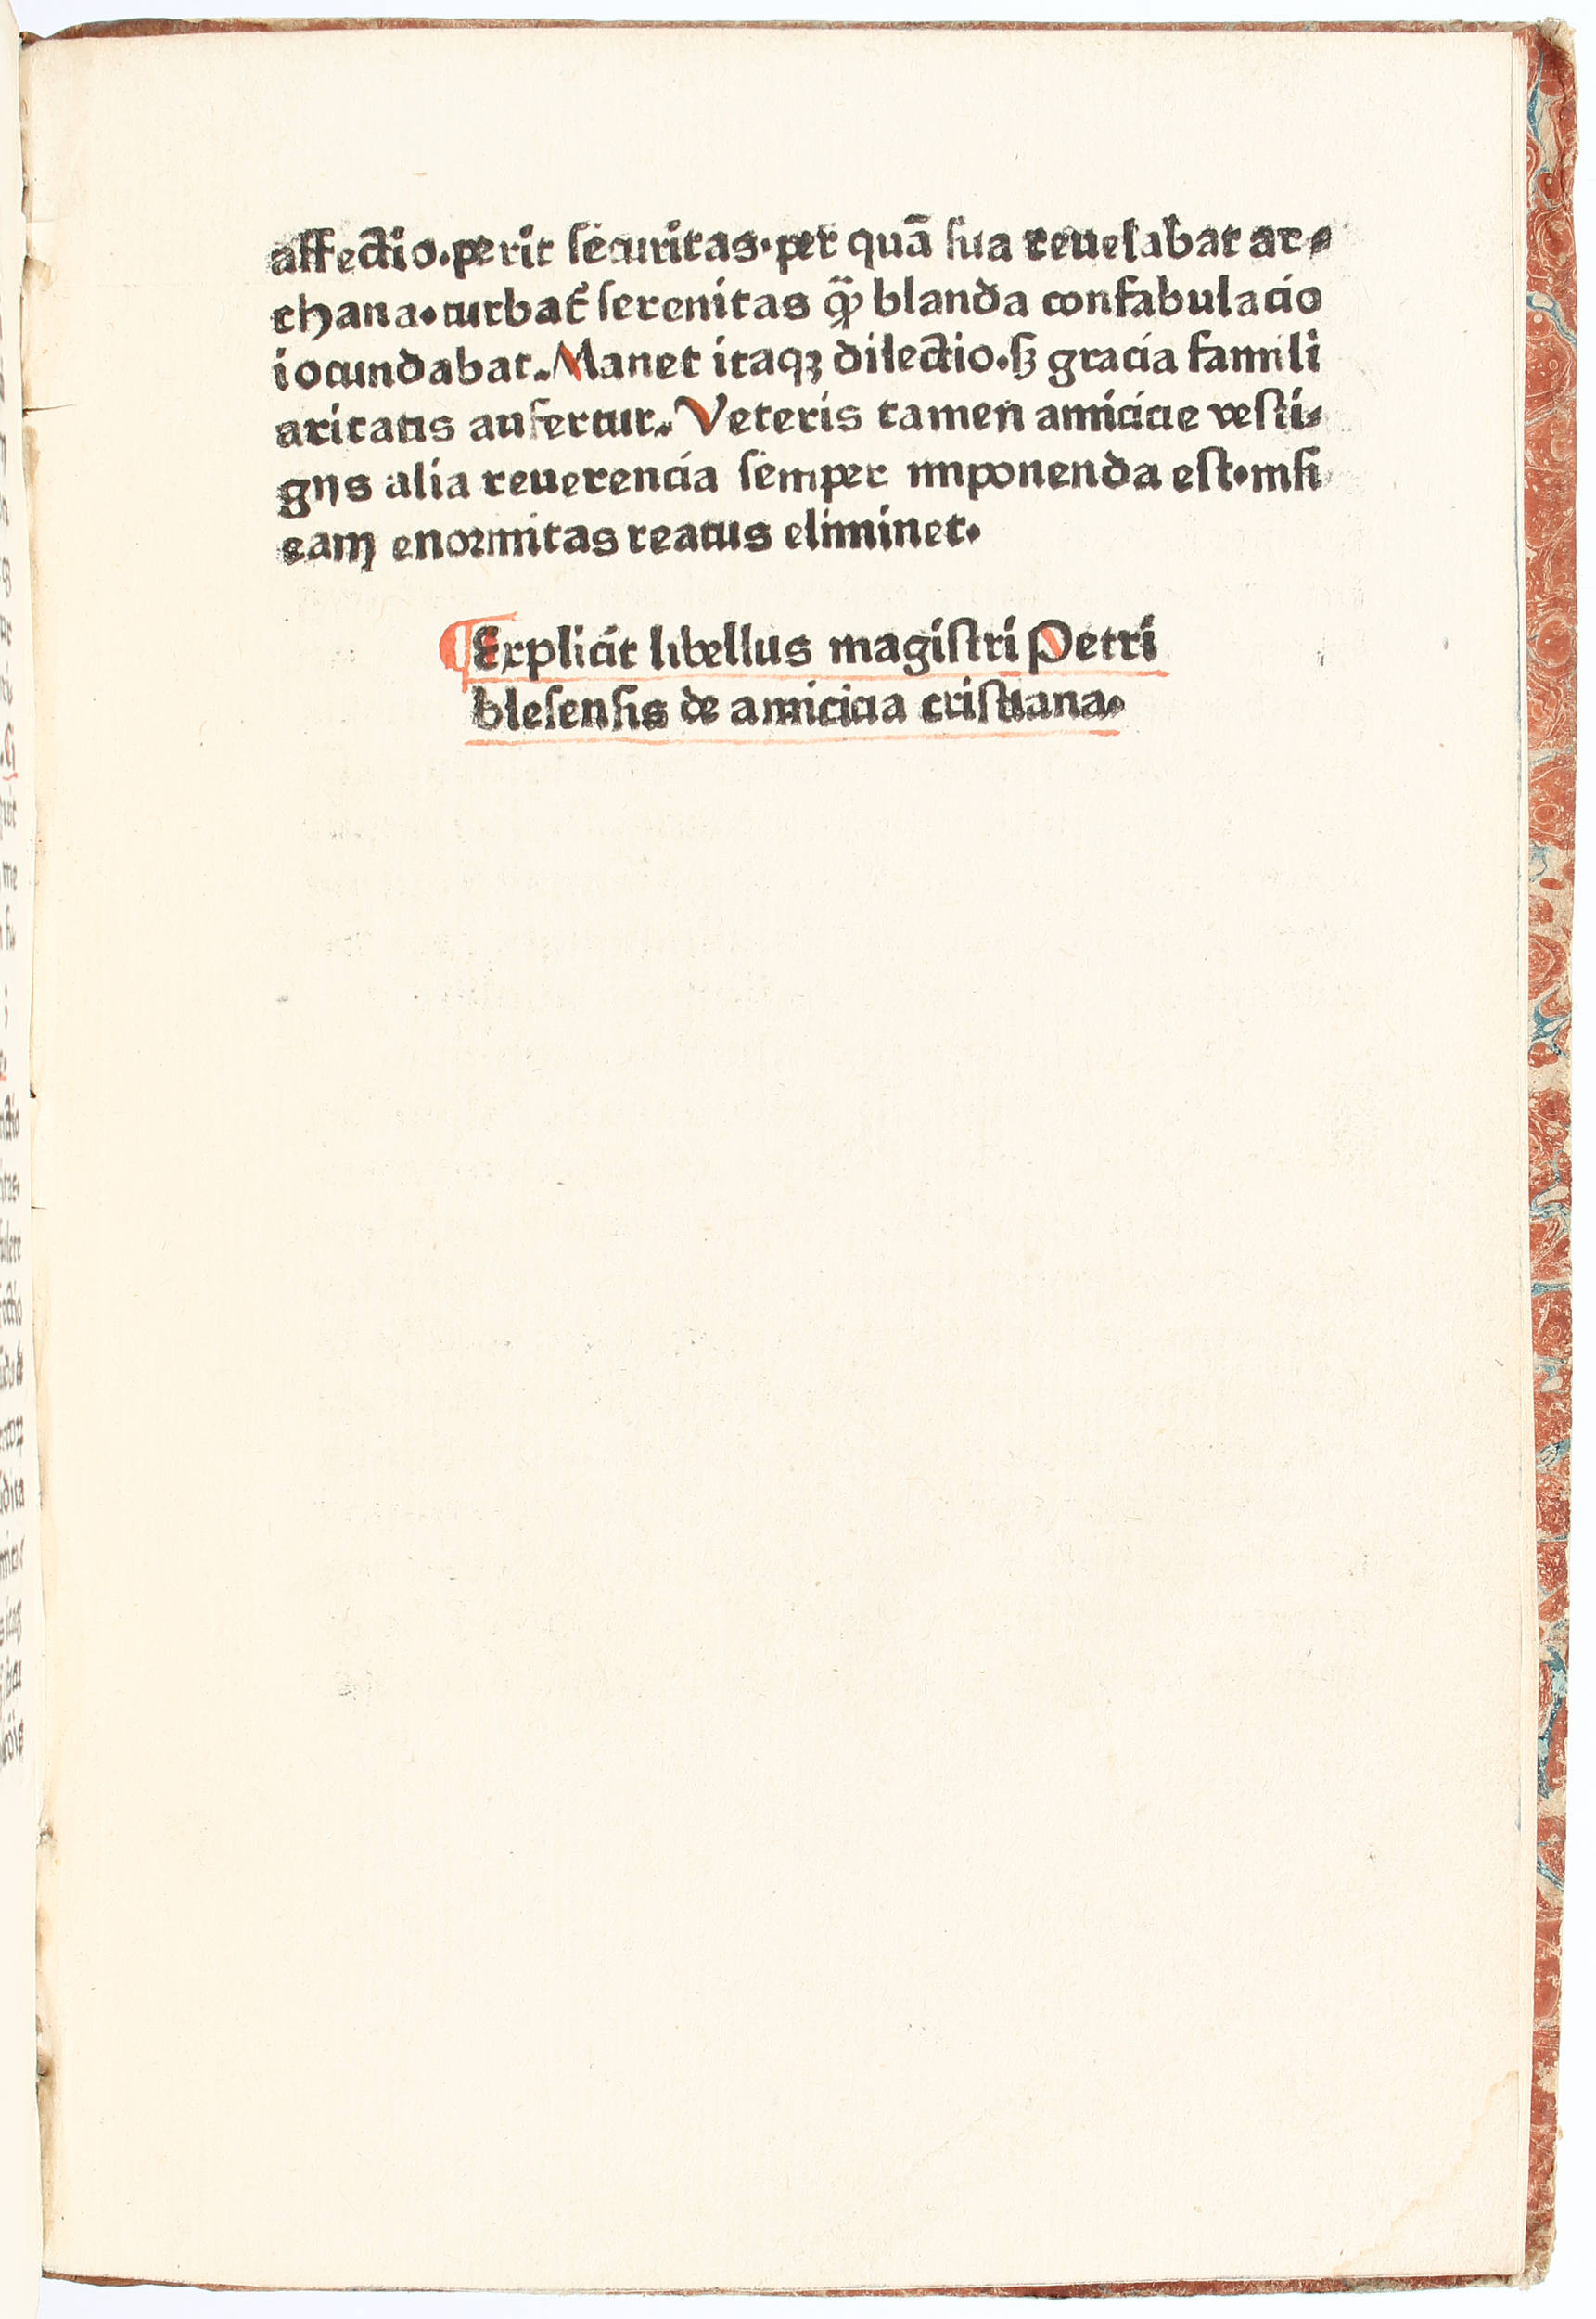 affectio.perit securitas.per quā sua reuelabat ar⸗
chana.turbat᷑ serenitas q̄ꝫ blanda confabulacio
iocundabat.Manet itaqꝫ dilectio.sꝫ gracia famili
aritatis aufertur.Veteris tamen amicicie vesti⸗
gijs alia reuerencia semper imponenda est.nisi
eam enormitas reatus eliminet.
¶Explicit libellus magistri Petri
blesensis de amicicia cristiana.